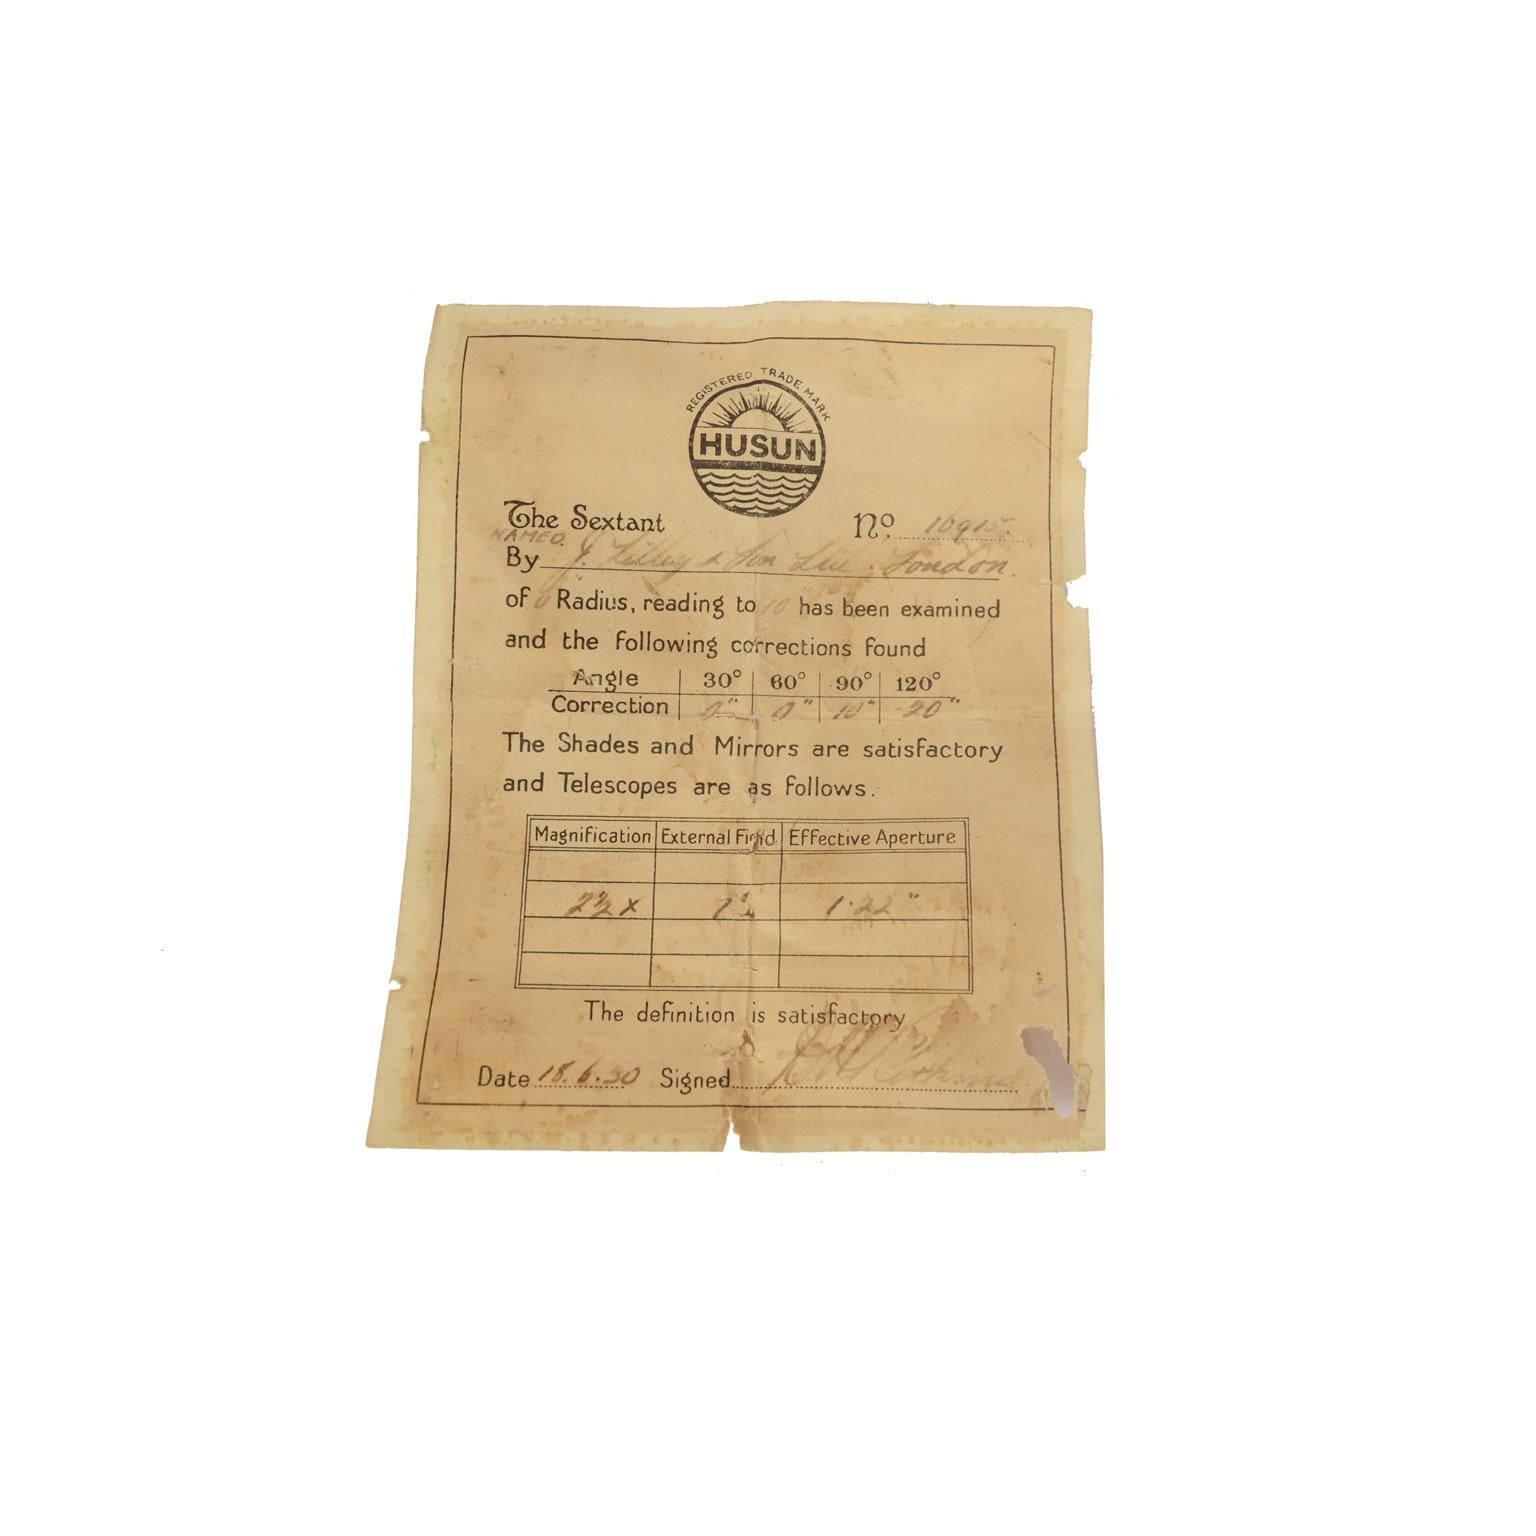 REGISTERED TRADE MARK
HUSUN
The Sextant No. 16915.
NAMED.
By J. Lilley & Son Ltd. London.
of 6" Radius, reading to 10" has been examined
and the following corrections found
Angle 30° 60° 90° 120°
Correction 0" 0" 10" 20"
The Shades and Mirrors are satisfactory
and Telescopes are as follows.
Magnification External Field Effective Aperture
2½ x 1.22"
The definition is satisfactory
Date 18.6.30 Signed